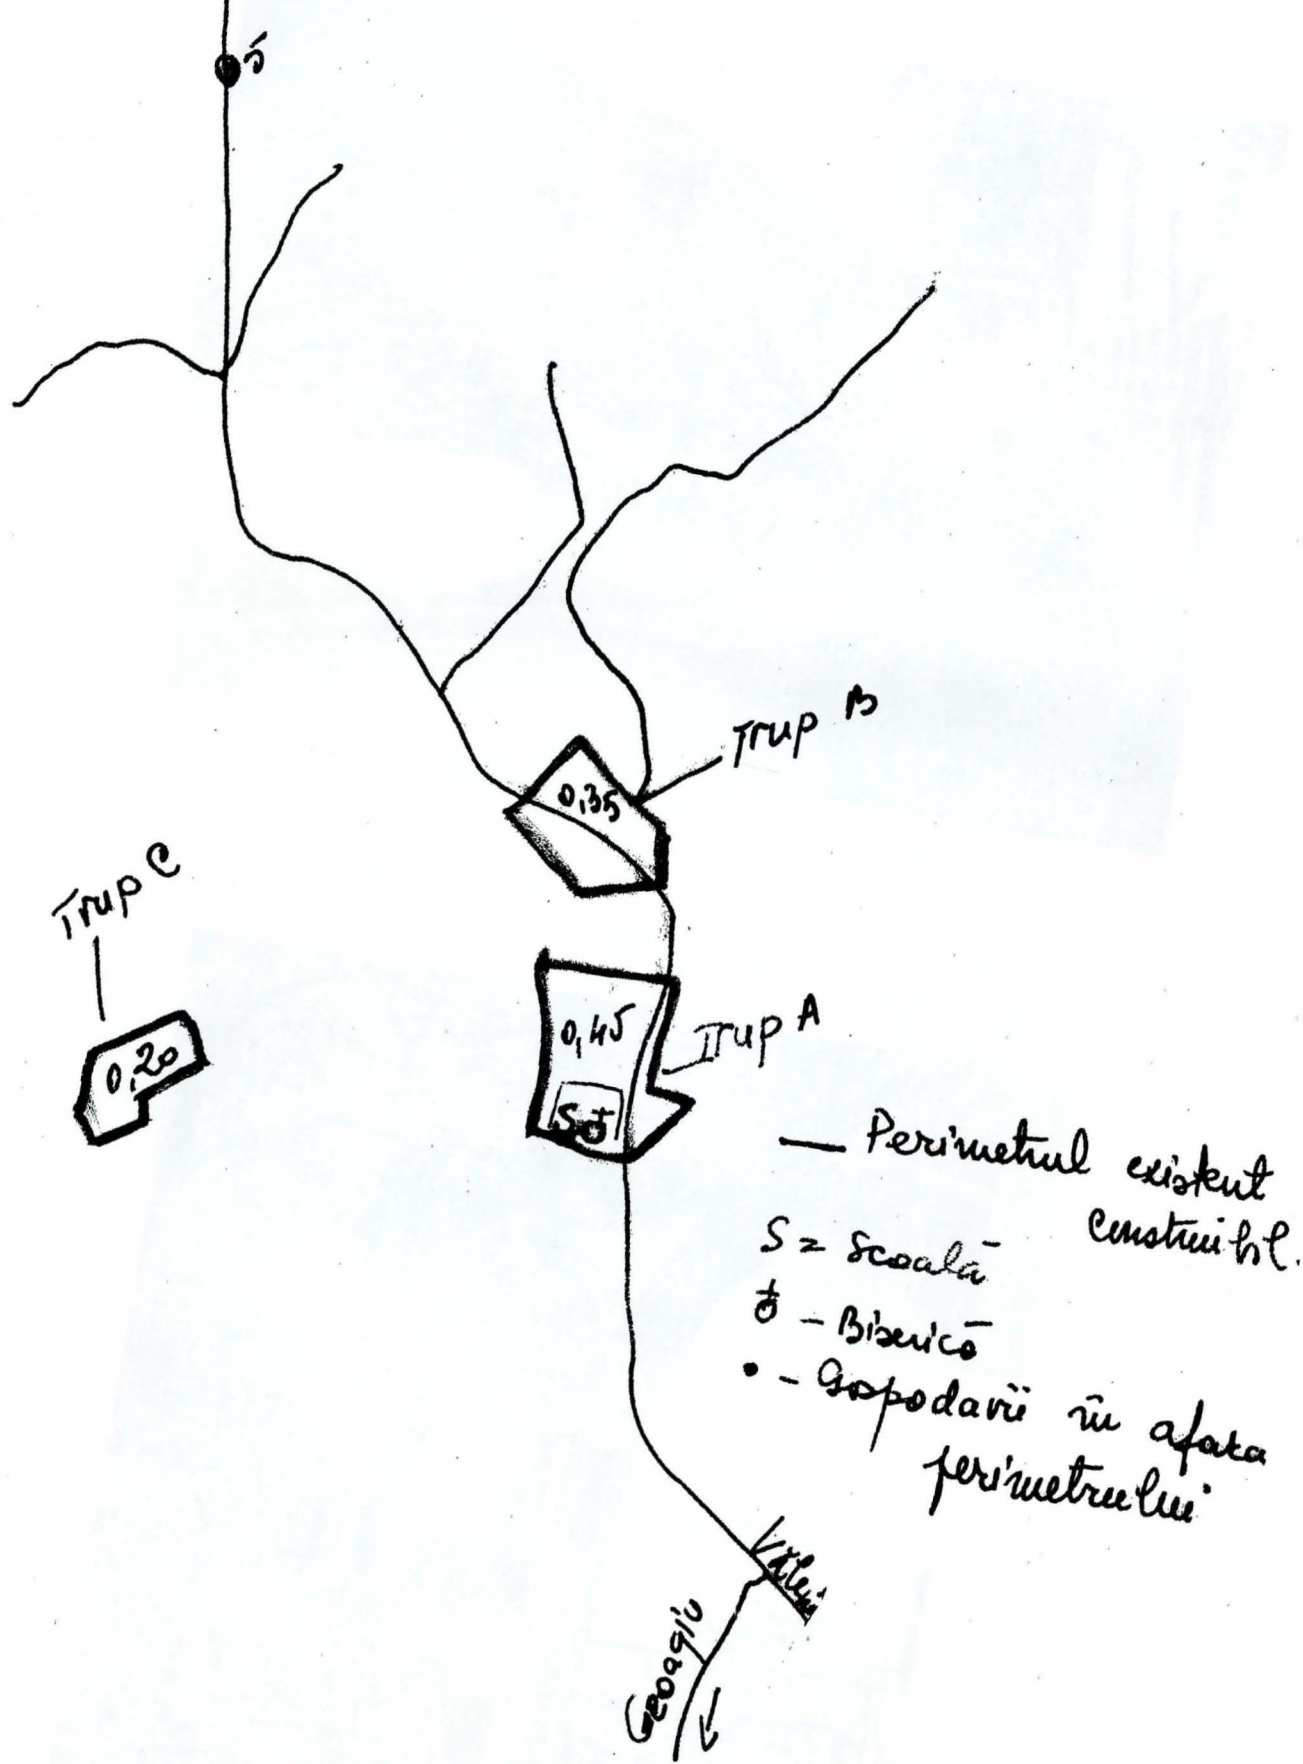 5
Trup B
0,35
Trup C
0,20
0,45
Trup A
S♁
— Perimetrul existent
construibil.
S = Scoală
♁ - Biserică
• - Gospodarii în afara
perimetrului
Văleni
Geoagiu